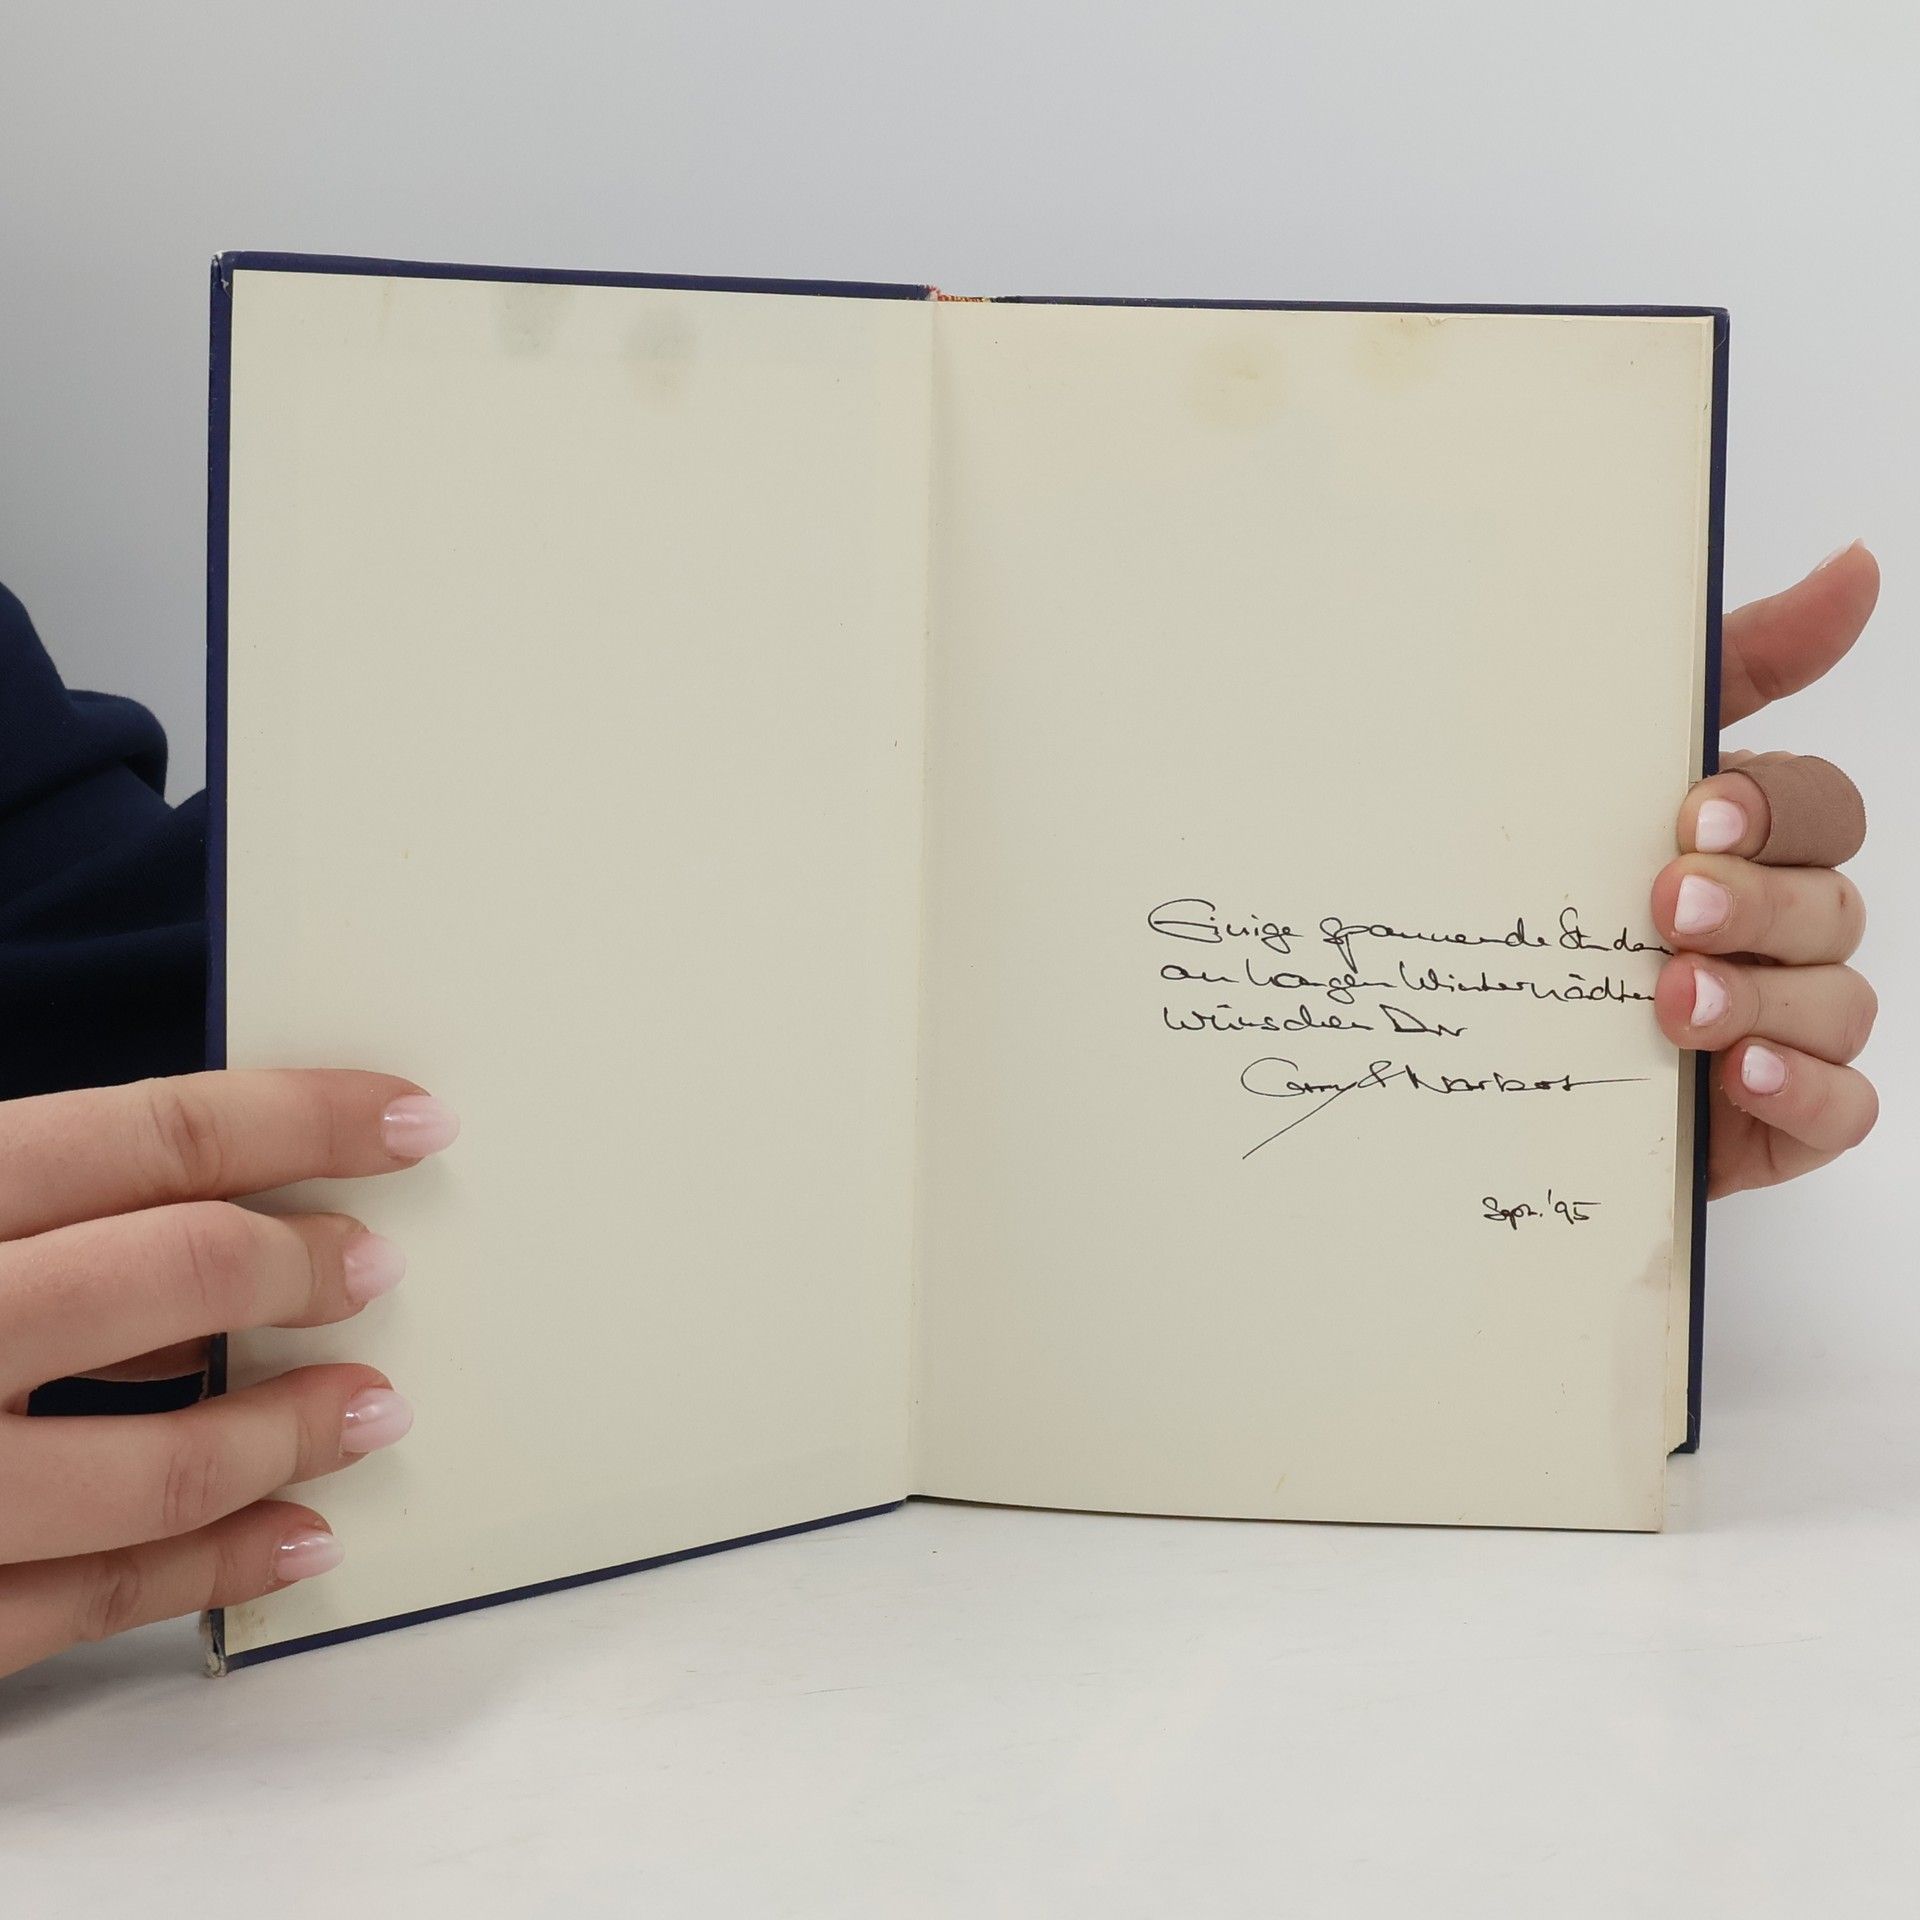 Einige spannende Stunden
an langen Winternächten
wünschen Dir
& Norbert
Sept. '95